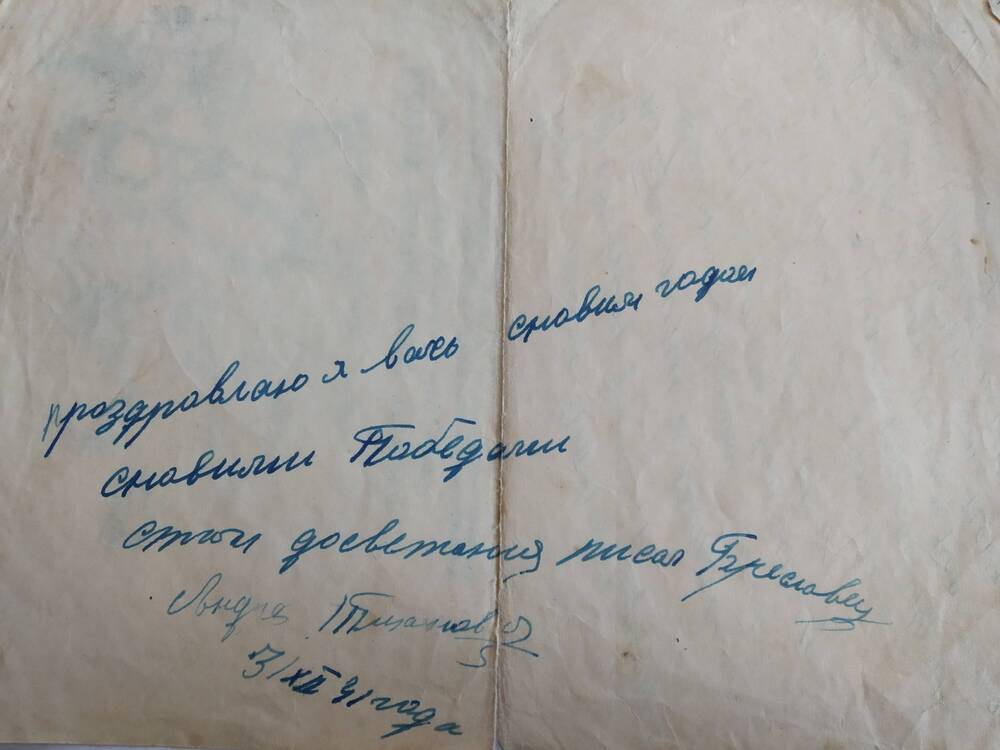 проздровлаю я вась сновим годом
сновими Победами
стем досветания писал Бреславец
Андре Тихонов
31 XII 41 года